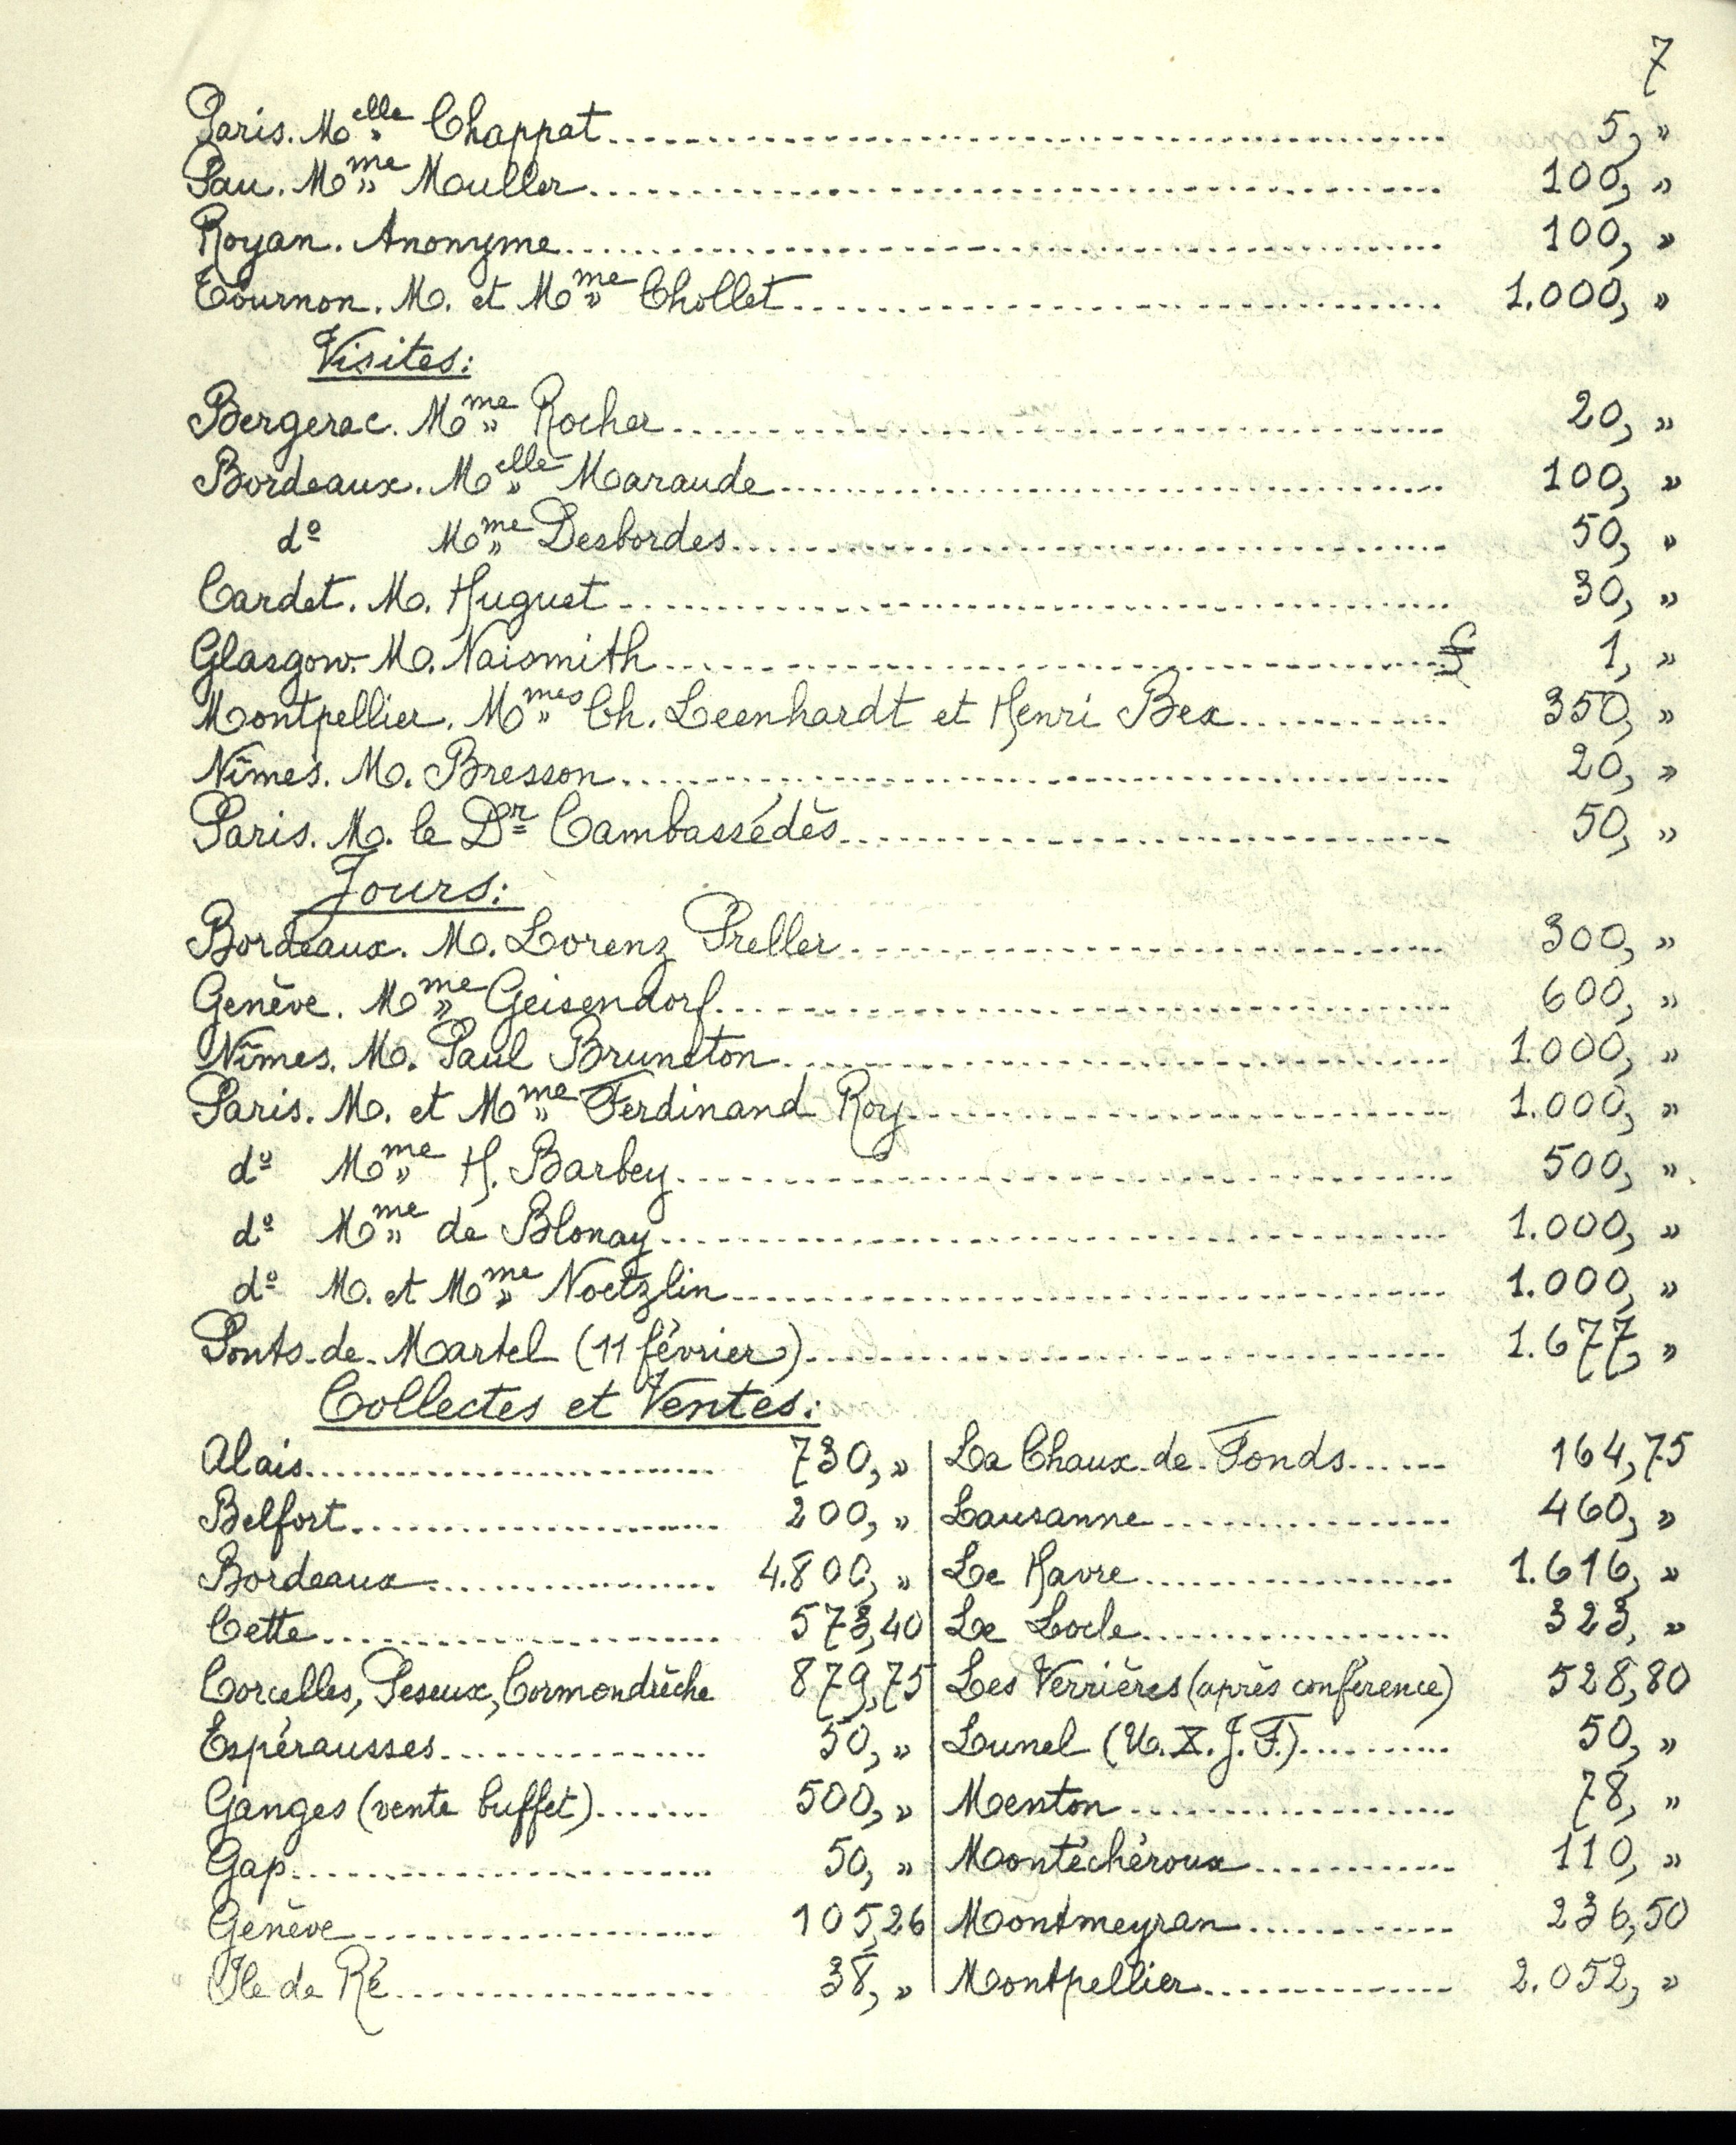 7
Paris. Melle Chappat 5, »
Pau. Mme Mouller 100, »
Royan. Anonyme 100, »
Tournon. M. et Mme Chollet 1.000, »
Visites:
Bergerac. Mme Rocher 20, »
Bordeaux. Melle Maraude 100, »
do Mme Desbordes 50, »
Cardet. M. Huguet 30, »
Glasgow. M. Naismith £ 1, »
Montpellier. Mmes Ch. Leenhardt et Henri Bex 350, »
Nîmes. M. Bresson 20, »
Paris. M. le Dr Cambassédès 50, »
Jours:
Bordeaux. M. Lorenz Preller 300, »
Genève. Mme Geisendorf 600, »
Nîmes. M. Paul Bruneton 1.000, »
Paris. M. et Mme Ferdinand Roy 1.000, »
do Mme H. Barbey 500, »
do Mme de Blonay 1.000, »
do M. et Mme Noetzlin 1.000, »
Ponts-de-Martel (11 février) 1.677, »
Collectes et Ventes:
Alais 730, »
Belfort 200, »
Bordeaux 4.800, »
Cette 573,40
Corcelles, Peseux, Cormondrèche 879,75
Espérausses 50, »
Ganges (vente buffet) 500, »
Gap 50, »
Genève 105,26
Ile de Ré 38, »
La Chaux-de-Fonds 164,75
Lausanne 460, »
Le Havre 1.616, »
Le Locle 323, »
Les Verrières (après conférence) 528,80
Lunel (U.X.J.F.) 50, »
Menton 78, »
Montéchéroux 110, »
Montmeyran 236,50
Montpellier 2.052, »